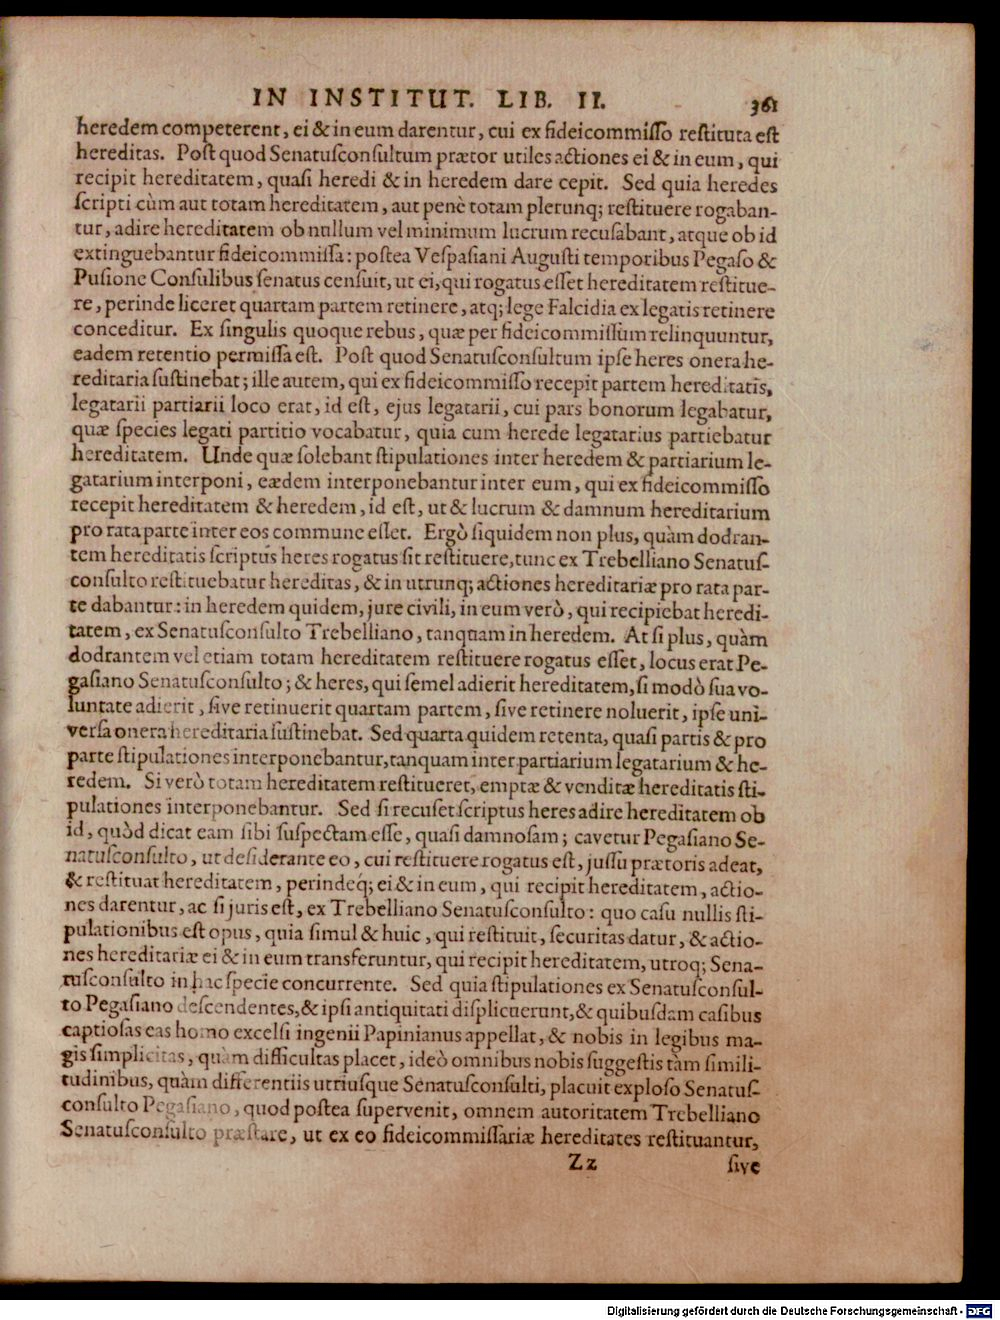 IN INSTITUT. LIB. II. 361
heredem competerent, ei & in eum darentur, cui ex fideicommiſſo reſtituta eſt
hereditas. Poſt quod Senatuſconſultum prætor utiles actiones ei & in eum, qui
recipit hereditatem, quaſi heredi & in heredem dare cepit. Sed quia heredes
ſcripti cùm aut totam hereditatem, aut penè totam plerunq; reſtituere rogaban-
tur, adire hereditatem ob nullum vel minimum lucrum recuſabant, atque ob id
extinguebantur fideicommiſſa: poſtea Veſpaſiani Auguſti temporibus Pegaſo &
Puſione Conſulibus ſenatus cenſuit, ut ei, qui rogatus eſſet hereditatem reſtitue-
re, perinde liceret quartam partem retinere, atq; lege Falcidia ex legatis retinere
conceditur. Ex ſingulis quoque rebus, quæ per fideicommiſſum relinquuntur,
eadem retentio permiſſa eſt. Poſt quod Senatuſconſultum ipſe heres onera he-
reditaria ſuſtinebat; ille autem, qui ex fideicommiſſo recepit partem hereditatis,
legatarii partiarii loco erat, id eſt, ejus legatarii, cui pars bonorum legabatur,
quæ ſpecies legati partitio vocabatur, quia cum herede legatarius partiebatur
hereditatem. Unde quæ ſolebant ſtipulationes inter heredem & partiarium le-
gatarium interponi, eædem interponebantur inter eum, qui ex fideicommiſſo
recepit hereditatem & heredem, id eſt, ut & lucrum & damnum hereditarium
pro rata parte inter eos commune eſſet. Ergò ſiquidem non plus, quàm dodran-
tem hereditatis ſcriptus heres rogatus ſit reſtituere, tunc ex Trebelliano Senatuſ-
conſulto reſtituebatur hereditas, & in utrunq; actiones hereditariæ pro rata par-
te dabantur: in heredem quidem, jure civili, in eum verò, qui recipiebat heredi-
tatem, ex Senatuſconſulto Trebelliano, tanquam in heredem. At ſi plus, quàm
dodrantem vel etiam totam hereditatem reſtituere rogatus eſſet, locus erat Pe-
gaſiano Senatuſconſulto; & heres, qui ſemel adierit hereditatem, ſi modò ſua vo-
luntate adierit, ſive retinuerit quartam partem, ſive retinere noluerit, ipſe uni-
verſa onera hereditaria ſuſtinebat. Sed quarta quidem retenta, quaſi partis & pro
parte ſtipulationes interponebantur, tanquam inter partiarium legatarium & he-
redem. Si verò totam hereditatem reſtitueret, emptæ & venditæ hereditatis ſti-
pulationes interponebantur. Sed ſi recuſet ſcriptus heres adire hereditatem ob
id, quòd dicat eam ſibi ſuſpectam eſſe, quaſi damnoſam; cavetur Pegaſiano Se-
natuſconſulto, ut deſiderante eo, cui reſtituere rogatus eſt, juſſu prætoris adeat,
& reſtituat hereditatem, perindeq́; ei & in eum, qui recipit hereditatem, actio-
nes darentur, ac ſi juris eſt, ex Trebelliano Senatuſconſulto: quo caſu nullis ſti-
pulationibus eſt opus, quia ſimul & huic, qui reſtituit, ſecuritas datur, & actio-
nes hereditariæ ei & in eum transferuntur, qui recipit hereditatem, utroq; Sena-
tuſconſulto in hac ſpecie concurrente. Sed quia ſtipulationes ex Senatuſconſul-
to Pegaſiano deſcendentes, & ipſi antiquitati diſplicuerunt, & quibuſdam caſibus
captioſas eas homo excelſi ingenii Papinianus appellat, & nobis in legibus ma-
gis ſimplicitas, quàm difficultas placet, ideò omnibus nobis ſuggeſtis tàm ſimili-
tudinibus, quàm differentiis utriuſque Senatuſconſulti, placuit exploſo Senatuſ-
conſulto Pegaſiano, quod poſtea ſupervenit, omnem autoritatem Trebelliano
Senatuſconſulto præſtare, ut ex eo fideicommiſſariæ hereditates reſtituantur,
Zz ſive
Digitalisierung gefördert durch die Deutsche Forschungsgemeinschaft - DFG